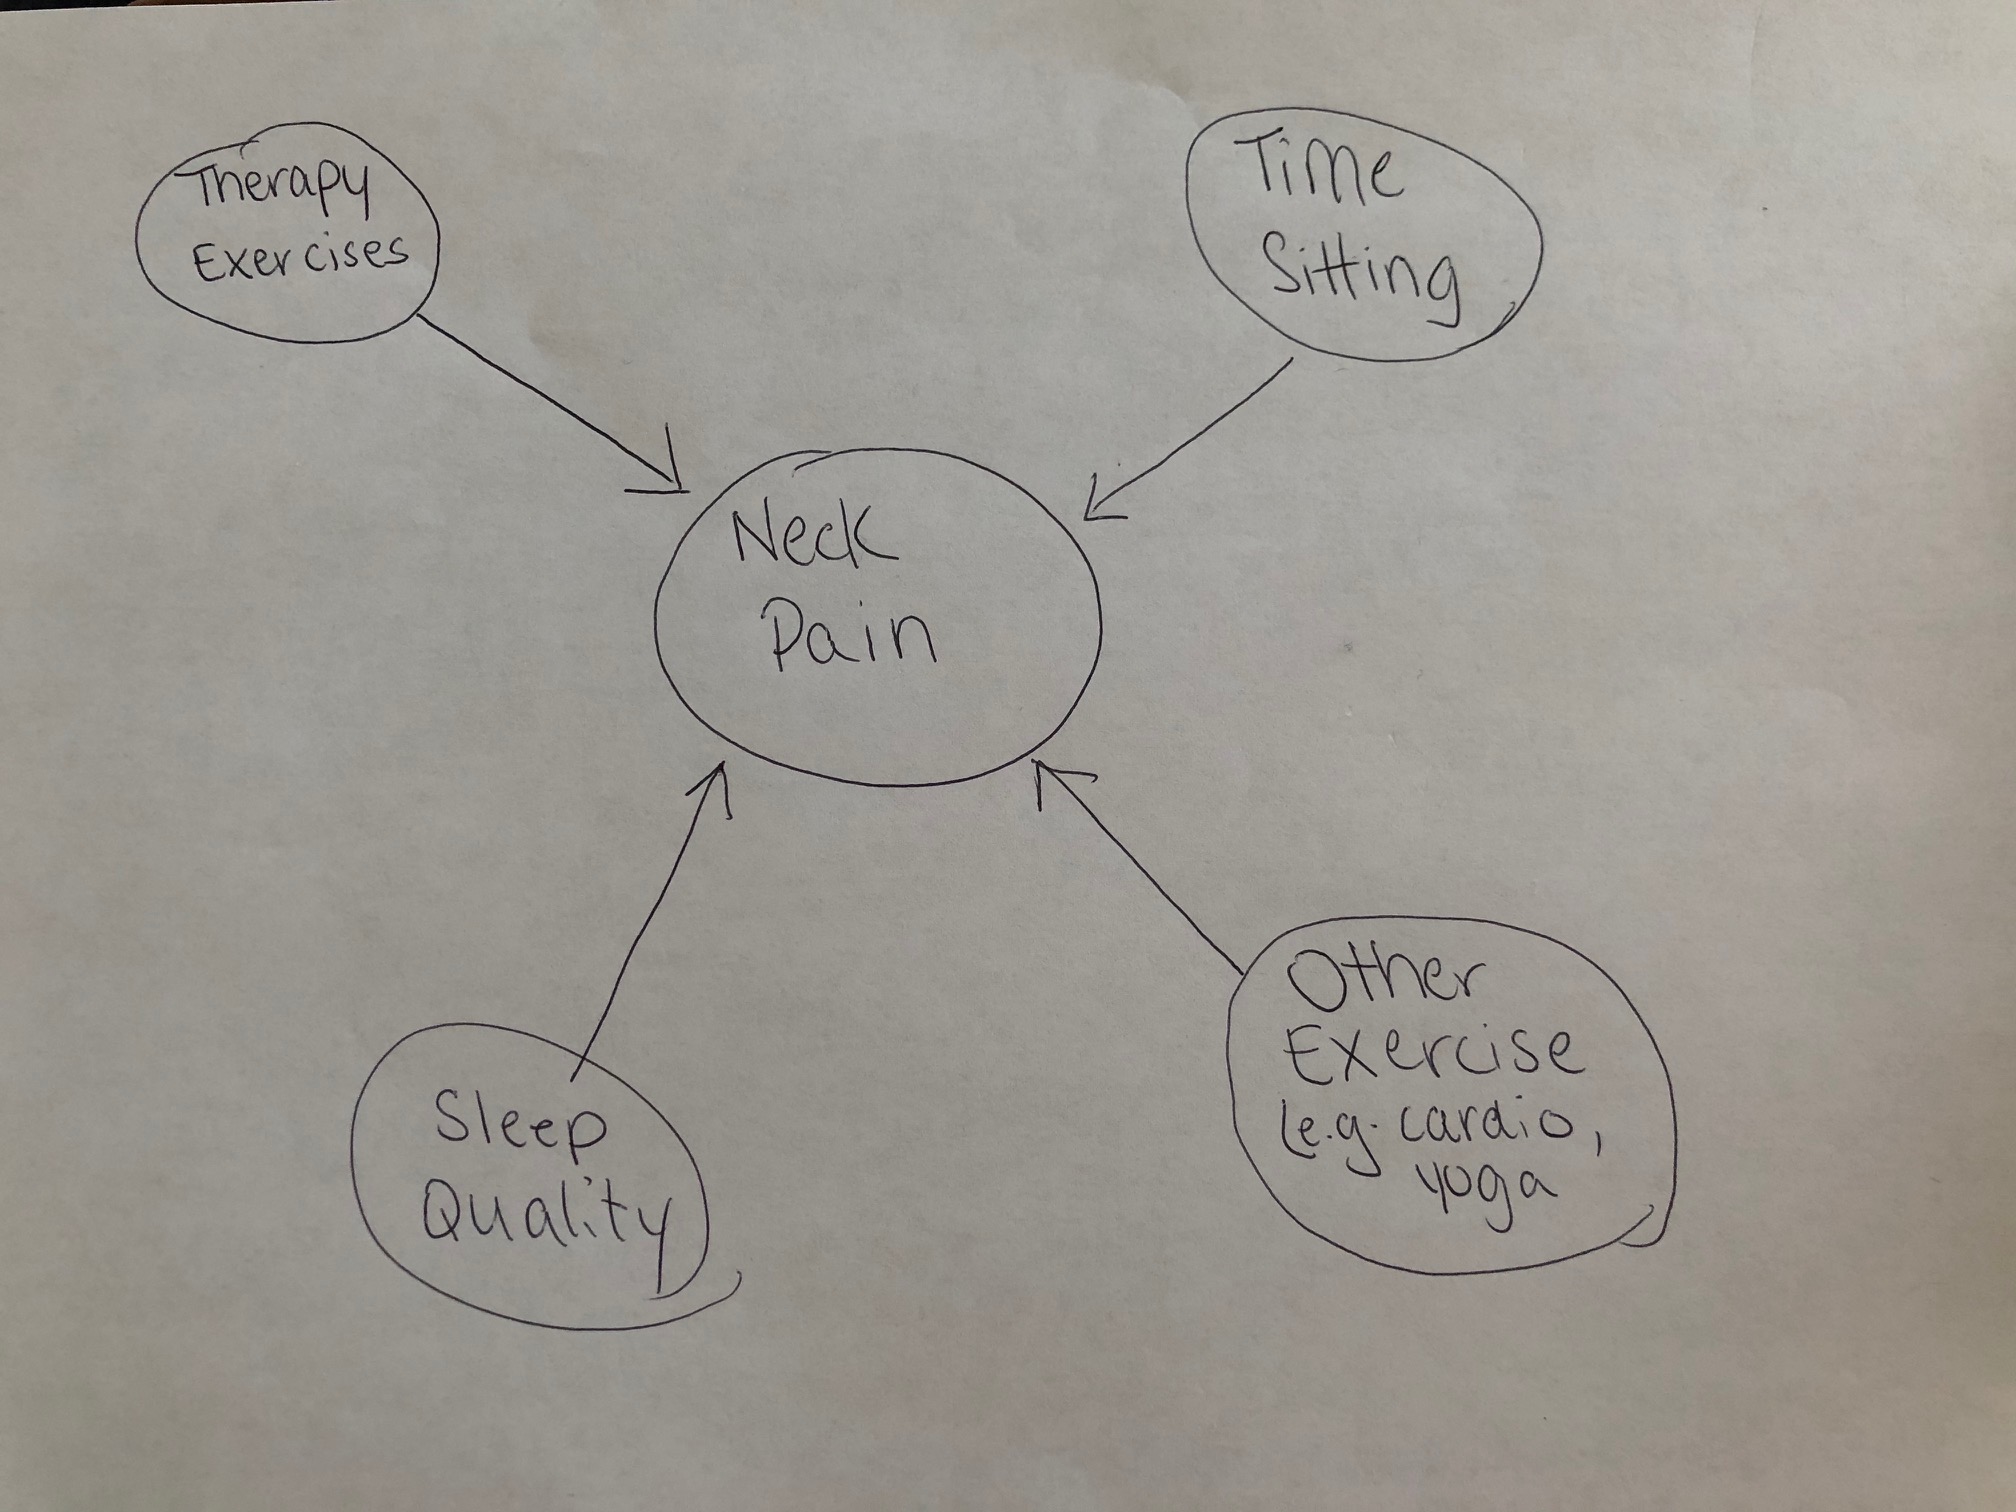 Therapy
Exercises
Time
Sitting
Neck
Pain
Sleep
Quality
Other
Exercise
(e.g. cardio,
yoga